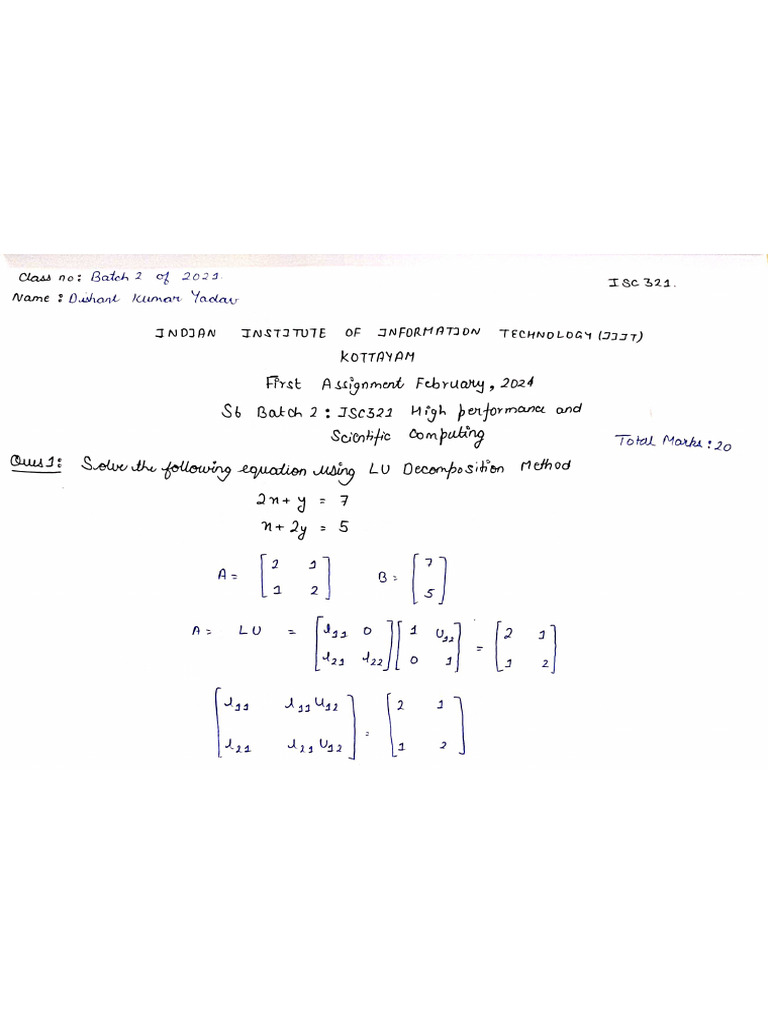 Class no: Batch 2 of 2021.
ISC 321.
Name: Dishant Kumar Yadav
INDIAN INSTITUTE OF INFORMATION TECHNOLOGY (IIIT)
KOTTAYAM
First Assignment February, 2024
S6 Batch 2: ISC321 High performance and
Scientific Computing
Total Marks: 20
Ques 1: Solve the following equation using LU Decomposition Method
2x + y = 7
x + 2y = 5
A = [2 1] B = [7]
[1 2] [5]
A = LU = [l11 0] [1 U12] = [2 1]
[l21 l22] [0 1] [1 2]
[l11 l11U12] = [2 1]
[l21 l21U12] [1 2]